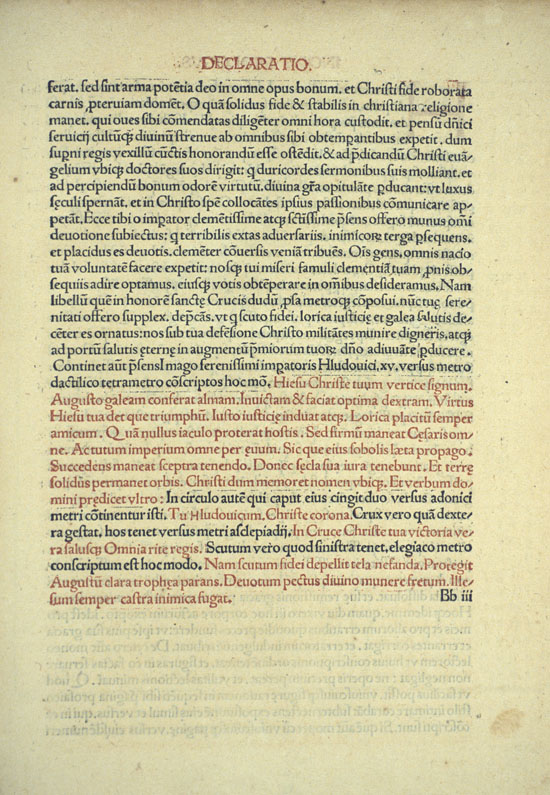 DECLARATIO.
ferat. sed sint arma potētia deo in omne opus bonum. et Christi fide roborata
carnis ꝓteruiam domēt. O quā solidus fide & stabilis in christiana religione
manet. qui oues sibi cōmendatas diligēter omni hora custodit. et pensū dn̄ici
seruicij cultūqꝫ diuinū strenue ab omnibus sibi obtempantibus expetit. dum
sūpni regis vexillū cūctis honorandū esse ostēdit. & ad p̄dicandū Christi euā-
gelium vbiqꝫ doctores suos dirigit: q duricordes sermonibus suis molliant. et
ad percipiendū bonum odorē virtutū. diuina gr̄a opitulāte ꝑducant: vt luxus
seculi spernāt. et in Christo spē collocātes ipsius passionibus cōmunicare ap-
petāt. Ecce tibi o impator clemētissime atqꝫ sctissime p̄sens offero munus omi
deuotione subiectus: q terribilis extas aduersariis. inimicorꝫ terga ꝓsequens.
et placidus es deuotis. clemēter cōuersis veniā tribuēs. Oīs gens. omnis nacio
tuā voluntatē facere expetit: nosqꝫ tui miseri famuli clementiā tuam ꝓnis ob-
sequiis adire optamus. eiusqꝫ votis obtēperare in omībus desideramus. Nam
libellū quē in honorē sanctę Crucis dudū ꝓsa metroqꝫ cōposui. nūc tuę sere-
nitati offero supplex. dep̄cās. vt q scuto fidei. lorica iusticię et galea salutis de-
cēter es ornatus: nos sub tua defēsione Christo militātes munire digneris. atqꝫ
ad portū salutis eternę in augmentū p̄miorum tuorꝫ dn̄o adiuuāte ꝑducere.
Continet aūt p̄sens Imago serenissimi impatoris Hludouici. xv. versus metro
dactilico tetrametro cōscriptos hoc mō. Hiesu Christe tuum vertice signum.
Augusto galeam conferat almam. Inuictam & faciat optima dextram. Virtus
Hiesu tua det que triumphū. Iusto iusticię induat atqꝫ. Lorica placitū semper
amicum. Quā nullus iaculo proterat hostis. Sed firmū maneat Cesaris om-
ne. Ac tutum imperium omne per euum. Sic que eius sobolis læta propago.
Succedens maneat sceptra tenendo. Donec secla sua iura tenebunt. Et terrę
solidus permanet orbis. Christi dum memoret nomen vbiqꝫ. Et verbum do-
mini predicet vltro: In circulo autē qui caput eius cingit duo versus adonici
metri cōtinentur isti. Tu Hludouicum. Christe corona. Crux vero quā dexte-
ra gestat. hos tenet versus metri asclepiadij. In Cruce Christe tua victoria ve-
ra salusqꝫ Omnia rite regis. Scutum vero quod sinistra tenet. elegiaco metro
conscriptum est hoc modo. Nam scutum fidei depellit tela nefanda. Protegit
Augustū clara trophea parans. Deuotum pectus diuino munere fretum. Ille-
sum semper castra inimica fugat. Bb iii